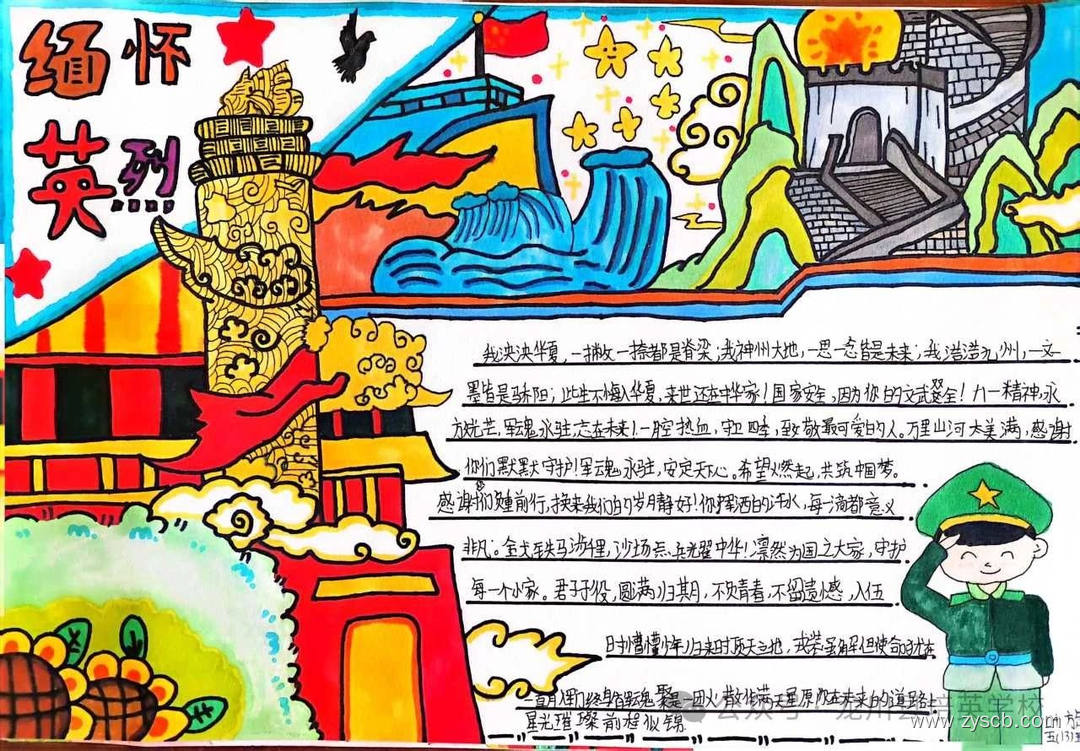 缅怀
英烈
我泱泱华夏,一撇一捺都是脊梁;我神州大地,一思一念皆是未来;我浩浩九州,一文
墨皆是骄阳;此生不悔入华夏,来世还在中华家!国家安全,因为你的文武双全!八一精神,永
放光芒,军魂永驻,志在未来!一腔热血,守卫四季,致敬最可爱的人。万里山河太美满,感谢
你们默默守护!军魂永驻,安定天下心。希望燃起,共筑中国梦。
感谢你们负重前行,换来我们的岁月静好!你挥洒的汗水,每一滴都意义
非凡。金戈铁马 沙场点兵 中华!凛然为国之大家,守护
每一个小家。君子于役,圆满归期,不负青春,不留遗憾,入伍
时懵懂少年归来时顶天立地,戎装虽卸但使命犹在
军魂 聚 一团火散作满天星原你在未来的道路上
星光璀璨前程似锦
公众号 龙川县培英学校
www.zyscb.com